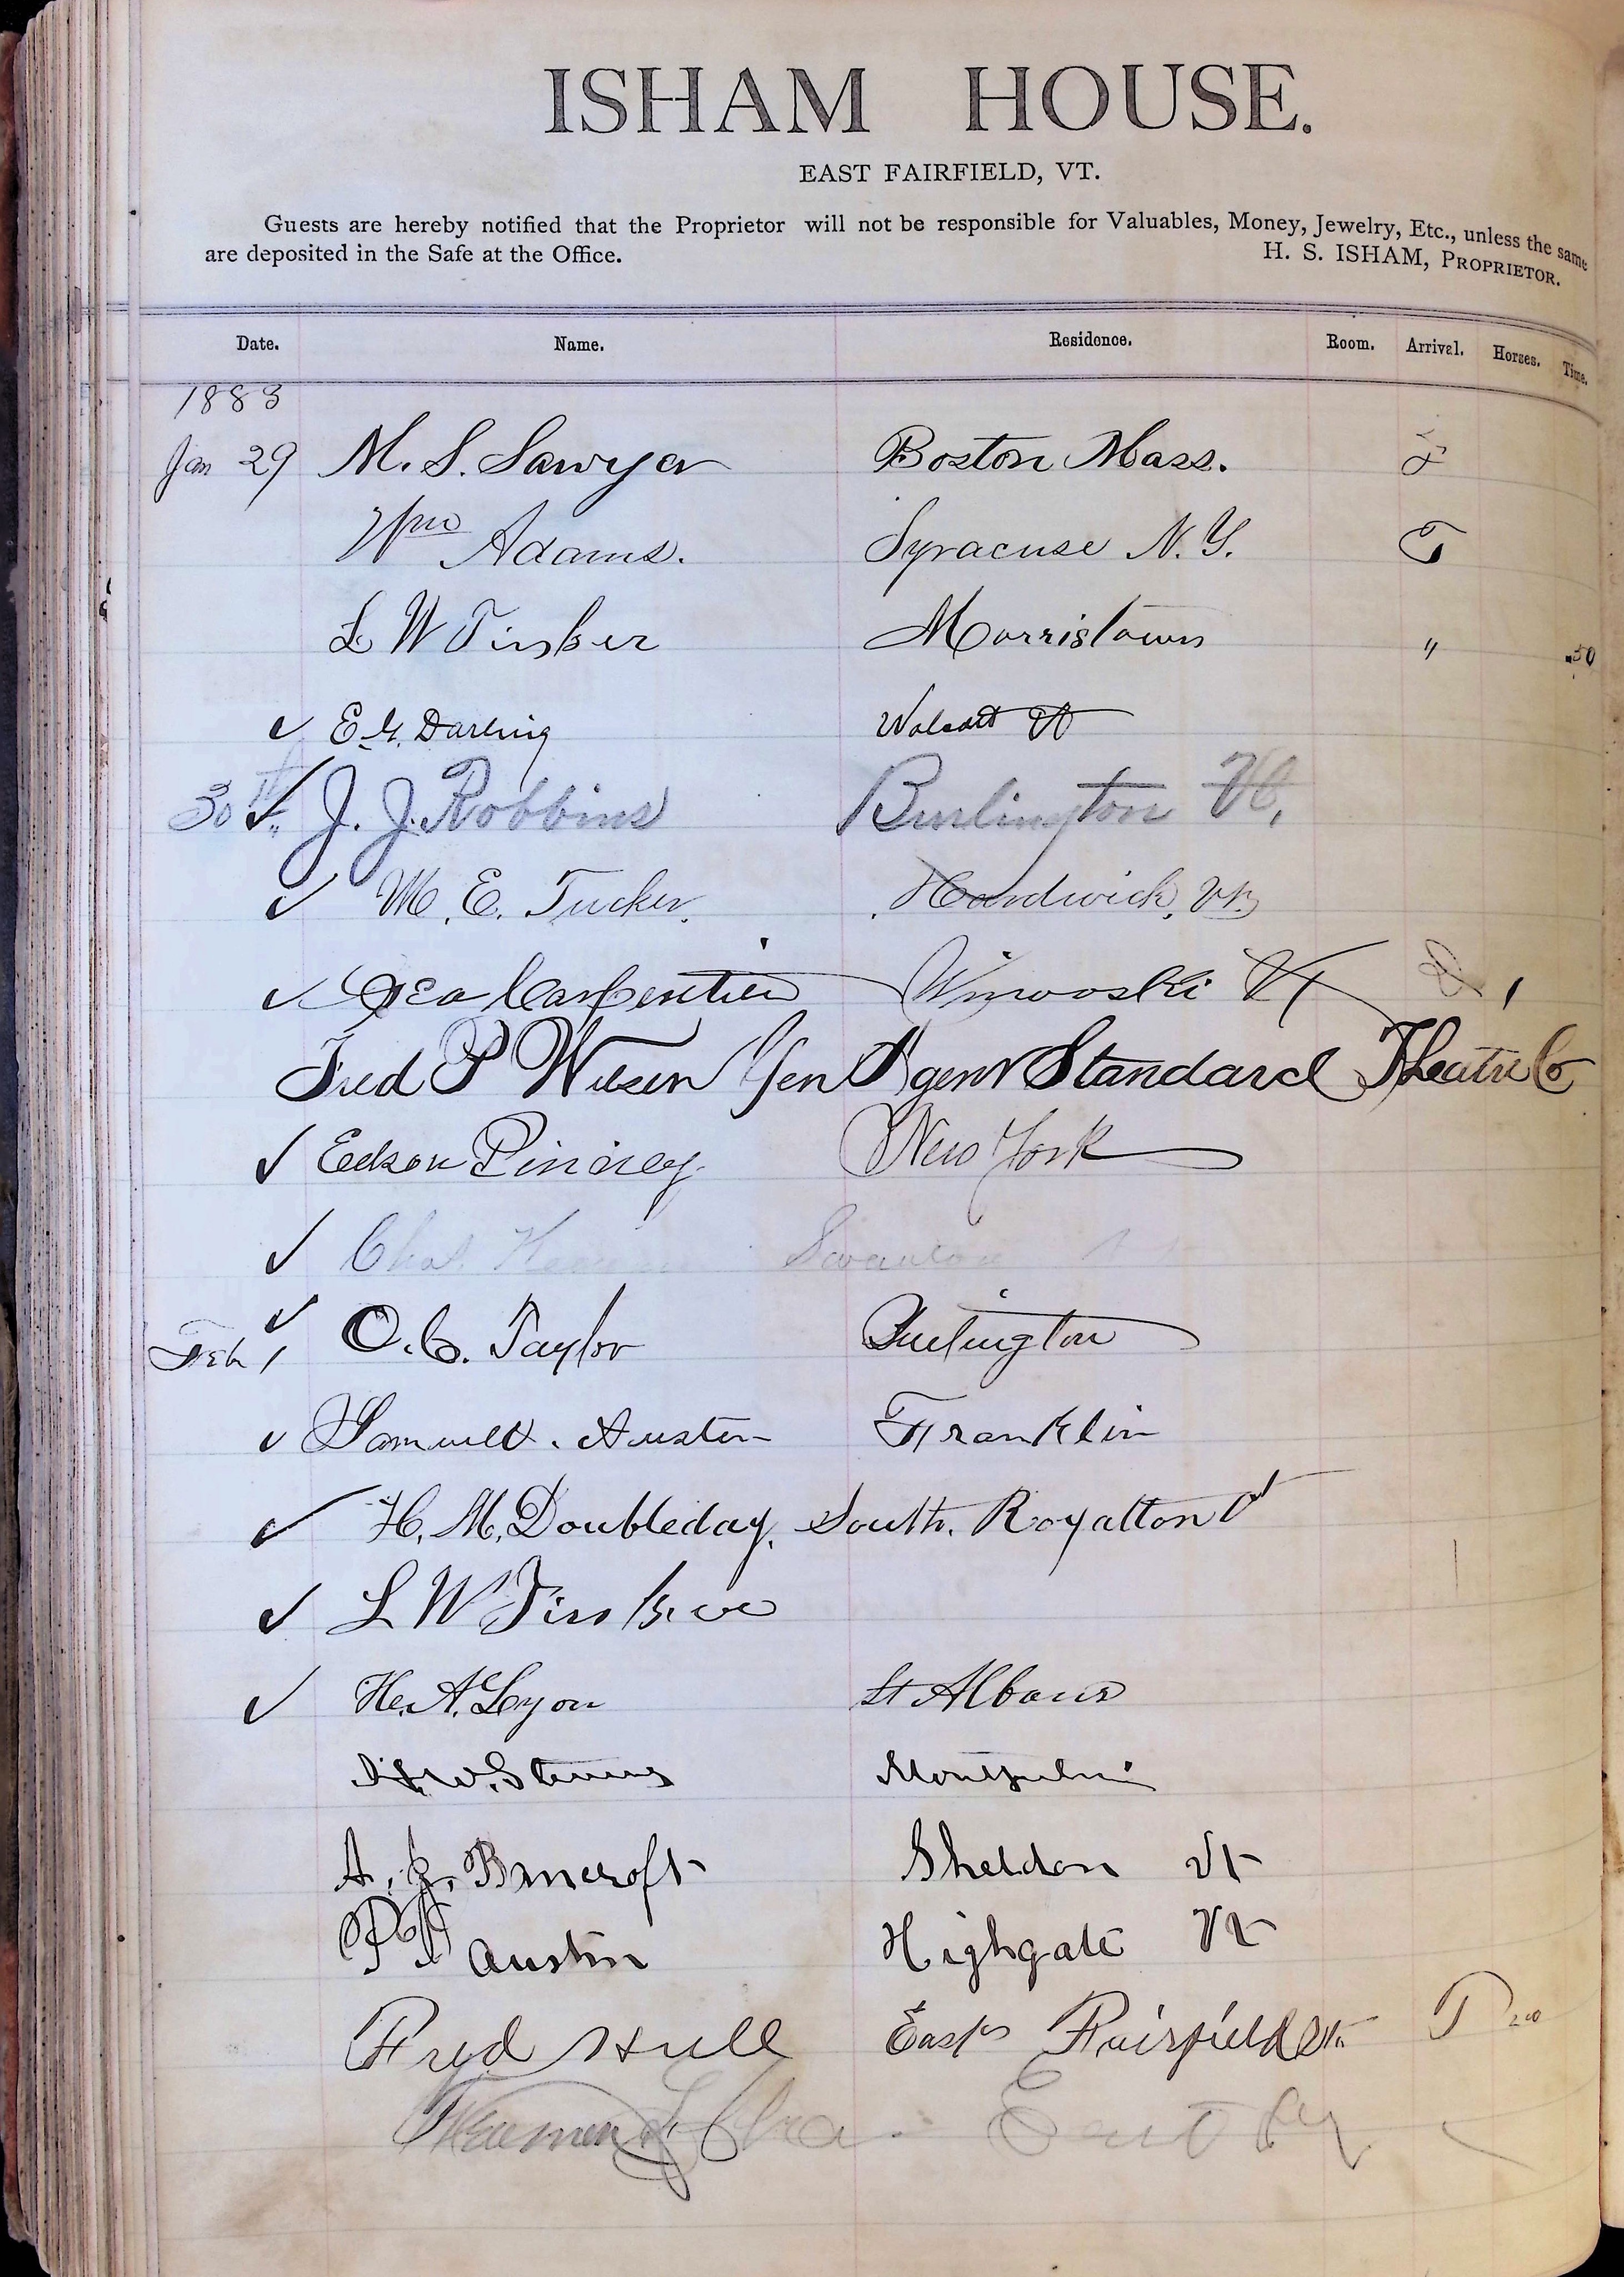 ISHAM HOUSE.
EAST FAIRFIELD, VT.
Guests are hereby notified that the Proprietor will not be responsible for Valuables, Money, Jewelry, Etc., unless the same
are deposited in the Safe at the Office.
H. S. ISHAM, PROPRIETOR.
Date. Name. Residence. Room. Arrival. Horses. Time.
1883
Jan 29 M. S. Sawyer Boston Mass.
Wm Adams. Syracuse N.Y. T
L W Tinker Morristown " .50
✓ E. G. Darling Wolcott Vt
30th ✓ J. J. Robbins Burlington Vt,
✓ M. E. Tucker. Hardwick, Vt.
✓ Geo Carpentier Winooski Vt
Fred P Wilson Gen Agent Standard Theatre Co
✓ Edson Pinney New York
✓ Chas. Swanton
Feb 1 ✓ O. C. Taylor Burlington
✓ Samuell. Austin Franklin
✓ H. M. Doubleday. South. Royalton Vt
✓ L W Tinker
✓ H. A. Lyon St Albans
W. Stevens Montpelier
A. J. Bancroft Sheldon Vt
Austin Highgate Vt
Fred Hull East Fairfield Vt. T 200
Truman East